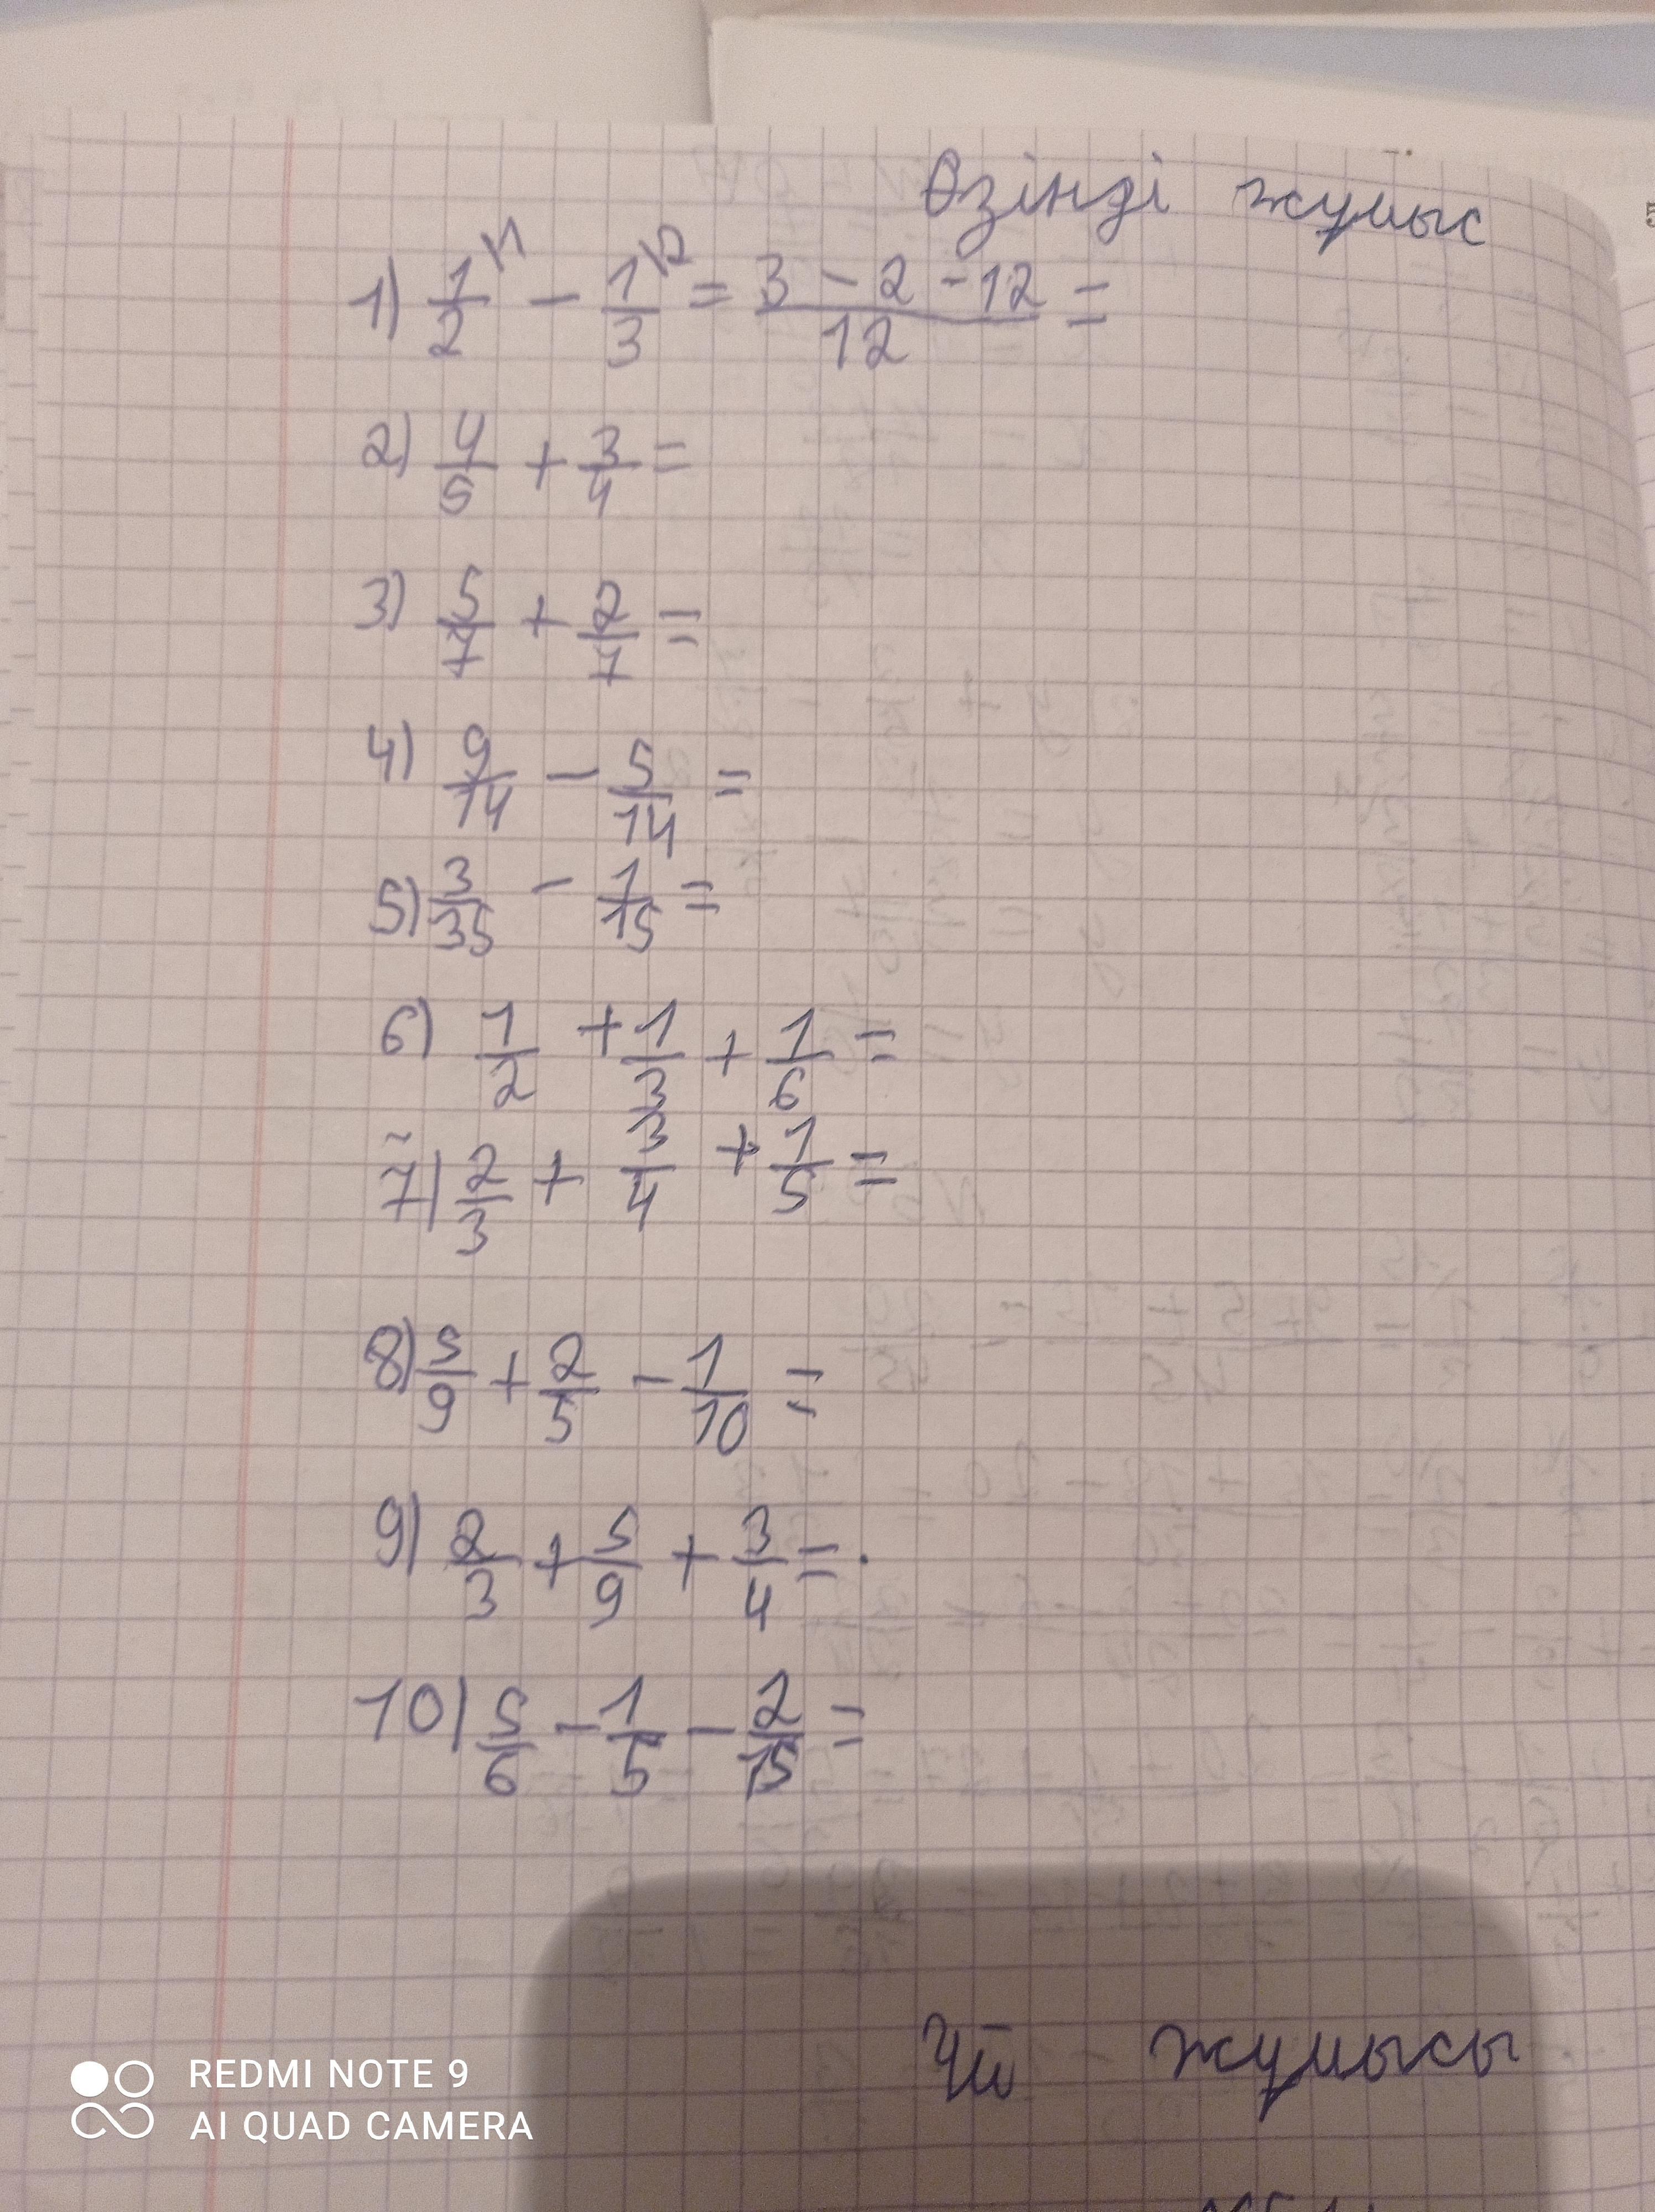 Өзінді жұмыс
1) 1/2 - 1/3 = (3 - 2 - 12)/12 =
2) 4/5 + 3/4 =
3) 5/7 + 2/7 =
4) 9/14 - 5/14 =
5) 3/35 - 1/15 =
6) 1/2 + 1/3 + 1/6 =
7) 2/3 + 3/4 + 1/5 =
8) 5/9 + 2/5 - 1/10 =
9) 2/3 + 5/9 + 3/4 =
10) 5/6 - 1/5 - 2/15 =
Үй жұмысы
REDMI NOTE 9
AI QUAD CAMERA